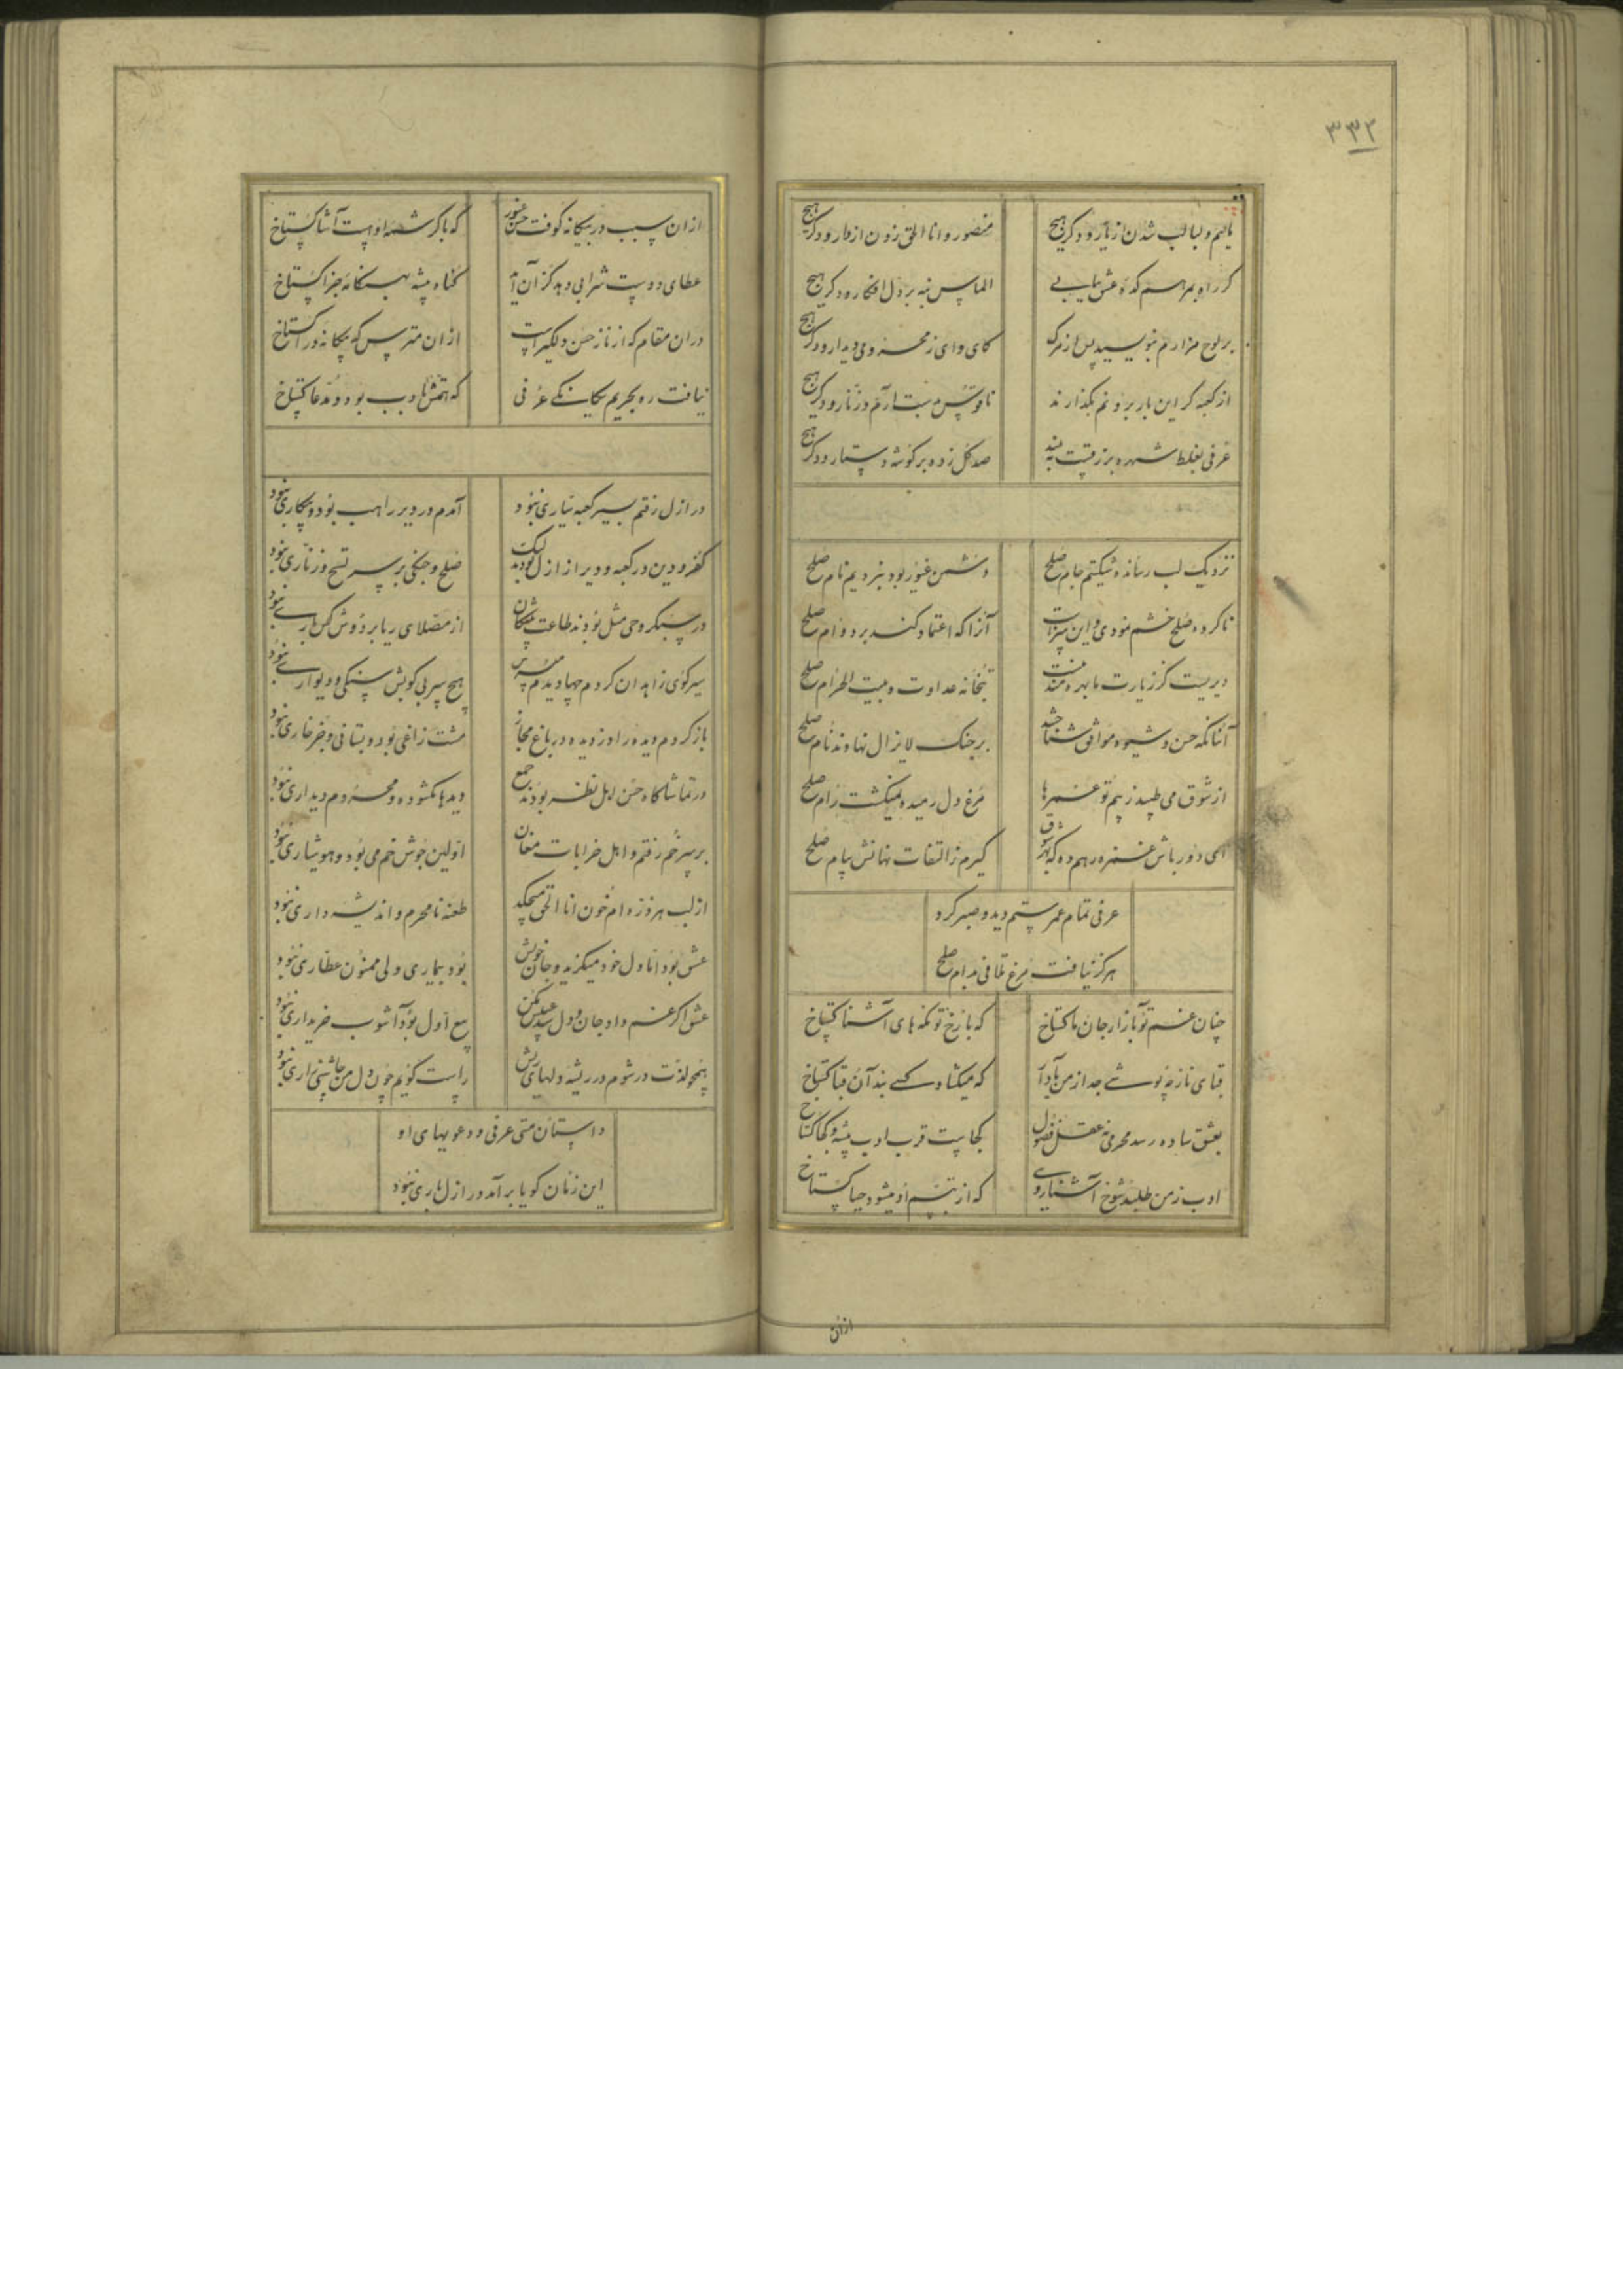 ۳۳۲
یاهم و لبالب شدن از یار و دگر هیچ
منصور و انا الحق زدن از دار و دگر هیچ
گر راه بمرهم کده عشق بیابی
الماس بنه بر دل افکار و دگر هیچ
بر لوح مزارم بنویسید پس از مرگ
کای وای ز محرومی دیدار و دگر هیچ
از کعبه گر این بار برونم بگذارند
ناقوس بدست آرم و زنار و دگر هیچ
عرفی بغلط شهره
صد گل زده بر گوشه دستار و دگر هیچ
نزدیک لب رسانده شکستیم جام صلح
دشمن غیور بود نبردیم نام صلح
ناکرده صلح خشم نمودی و این سزاست
آنرا که اعتماد کند بر دوام صلح
دیریست کز زیارت ما بهره مند نیست
بتخانه عداوت و بیت الحرام صلح
آنانکه حسن و شیوه موافق شناختند
بر جنگ لایزال نهادند نام صلح
از شوق می طپید ز بیم تو عمرها
مرغ دل رمیده نمیگشت رام صلح
ای دور باش غمزه رهم ده که بهر شوق
گیرم ز التفات نهانش پیام صلح
عرفی تمام عمر ستم دید و صبر کرد
هرگز نیافت مرغ تلافی بدام صلح
چنان غم تو ببازار جان ما گستاخ
که با رخ تو نگه های آشنا گستاخ
قبای ناز چه پوشی جدا ز من یاد آر
که میگشاد کسی بند آن قبا گستاخ
بعشق ساده رسد محرمی نه عقل فضول
کجاست قرب ادب پیشه و کجا گستاخ
ادب ز من طلبد شوخ آشنا رویی
که از تبسم او میشود حیا گستاخ
ازان
ازان سبب در بیگانه کوفت حسن غیور
که با کرشمه او هست آشنا گستاخ
عطای دوست شرابی دهد کزان آید
گناه پیشه به بنگاه جزا گستاخ
دران مقام که از ناز حسن دلگیر است
ازان مترس که بیگانه در آ گستاخ
نیافت ره بحریم یگانگی عرفی
که همتش با ادب بود و مدعا گستاخ
در ازل رفتم بسیر کعبه دیاری نبود
آمدم در دیر راهب بود و بیکاری نبود
کفر و دین در کعبه و دیر از ازل بودند لیک
صلح و جنگی بر سر تسبیح و زناری نبود
در سبکروحی مثل بودند طاعت پیشگان
از مصلای ریا بر دوش کس باری نبود
سیر کوی زاهدان کردم چها دیدم مپرس
هیچ سر بی کوبش سنگی و دیواری نبود
باز کردم دیده را دزدیده در باغ مجاز
مشت زاغی بود و بستانی و جز خاری نبود
در تماشاگاه حسن اهل نظر بودند جمع
دیدها بگشوده و محروم دیداری نبود
بر سر خم رفتم و اهل خرابات مغان
اولین جوش خم می بود و هوشیاری نبود
از لب هر ذره ام خون انا الحق میچکید
طعنه نامحرم و اندیشه داری نبود
عشق بود اما دل خود میگزید و جان خویش
بود بیماری ولی ممنون عطاری نبود
عشق اگر غم داد جان و دل ستد عیبش مکن
بیع اول بود آشوب خریداری نبود
همچو لذت در شوم در ریشه دلهای ریش
راست گویم چون دل من چاشنی زاری نبود
داستان مستی عرفی و دعویهای او
این زمان گویا برآمد در ازل باری نبود